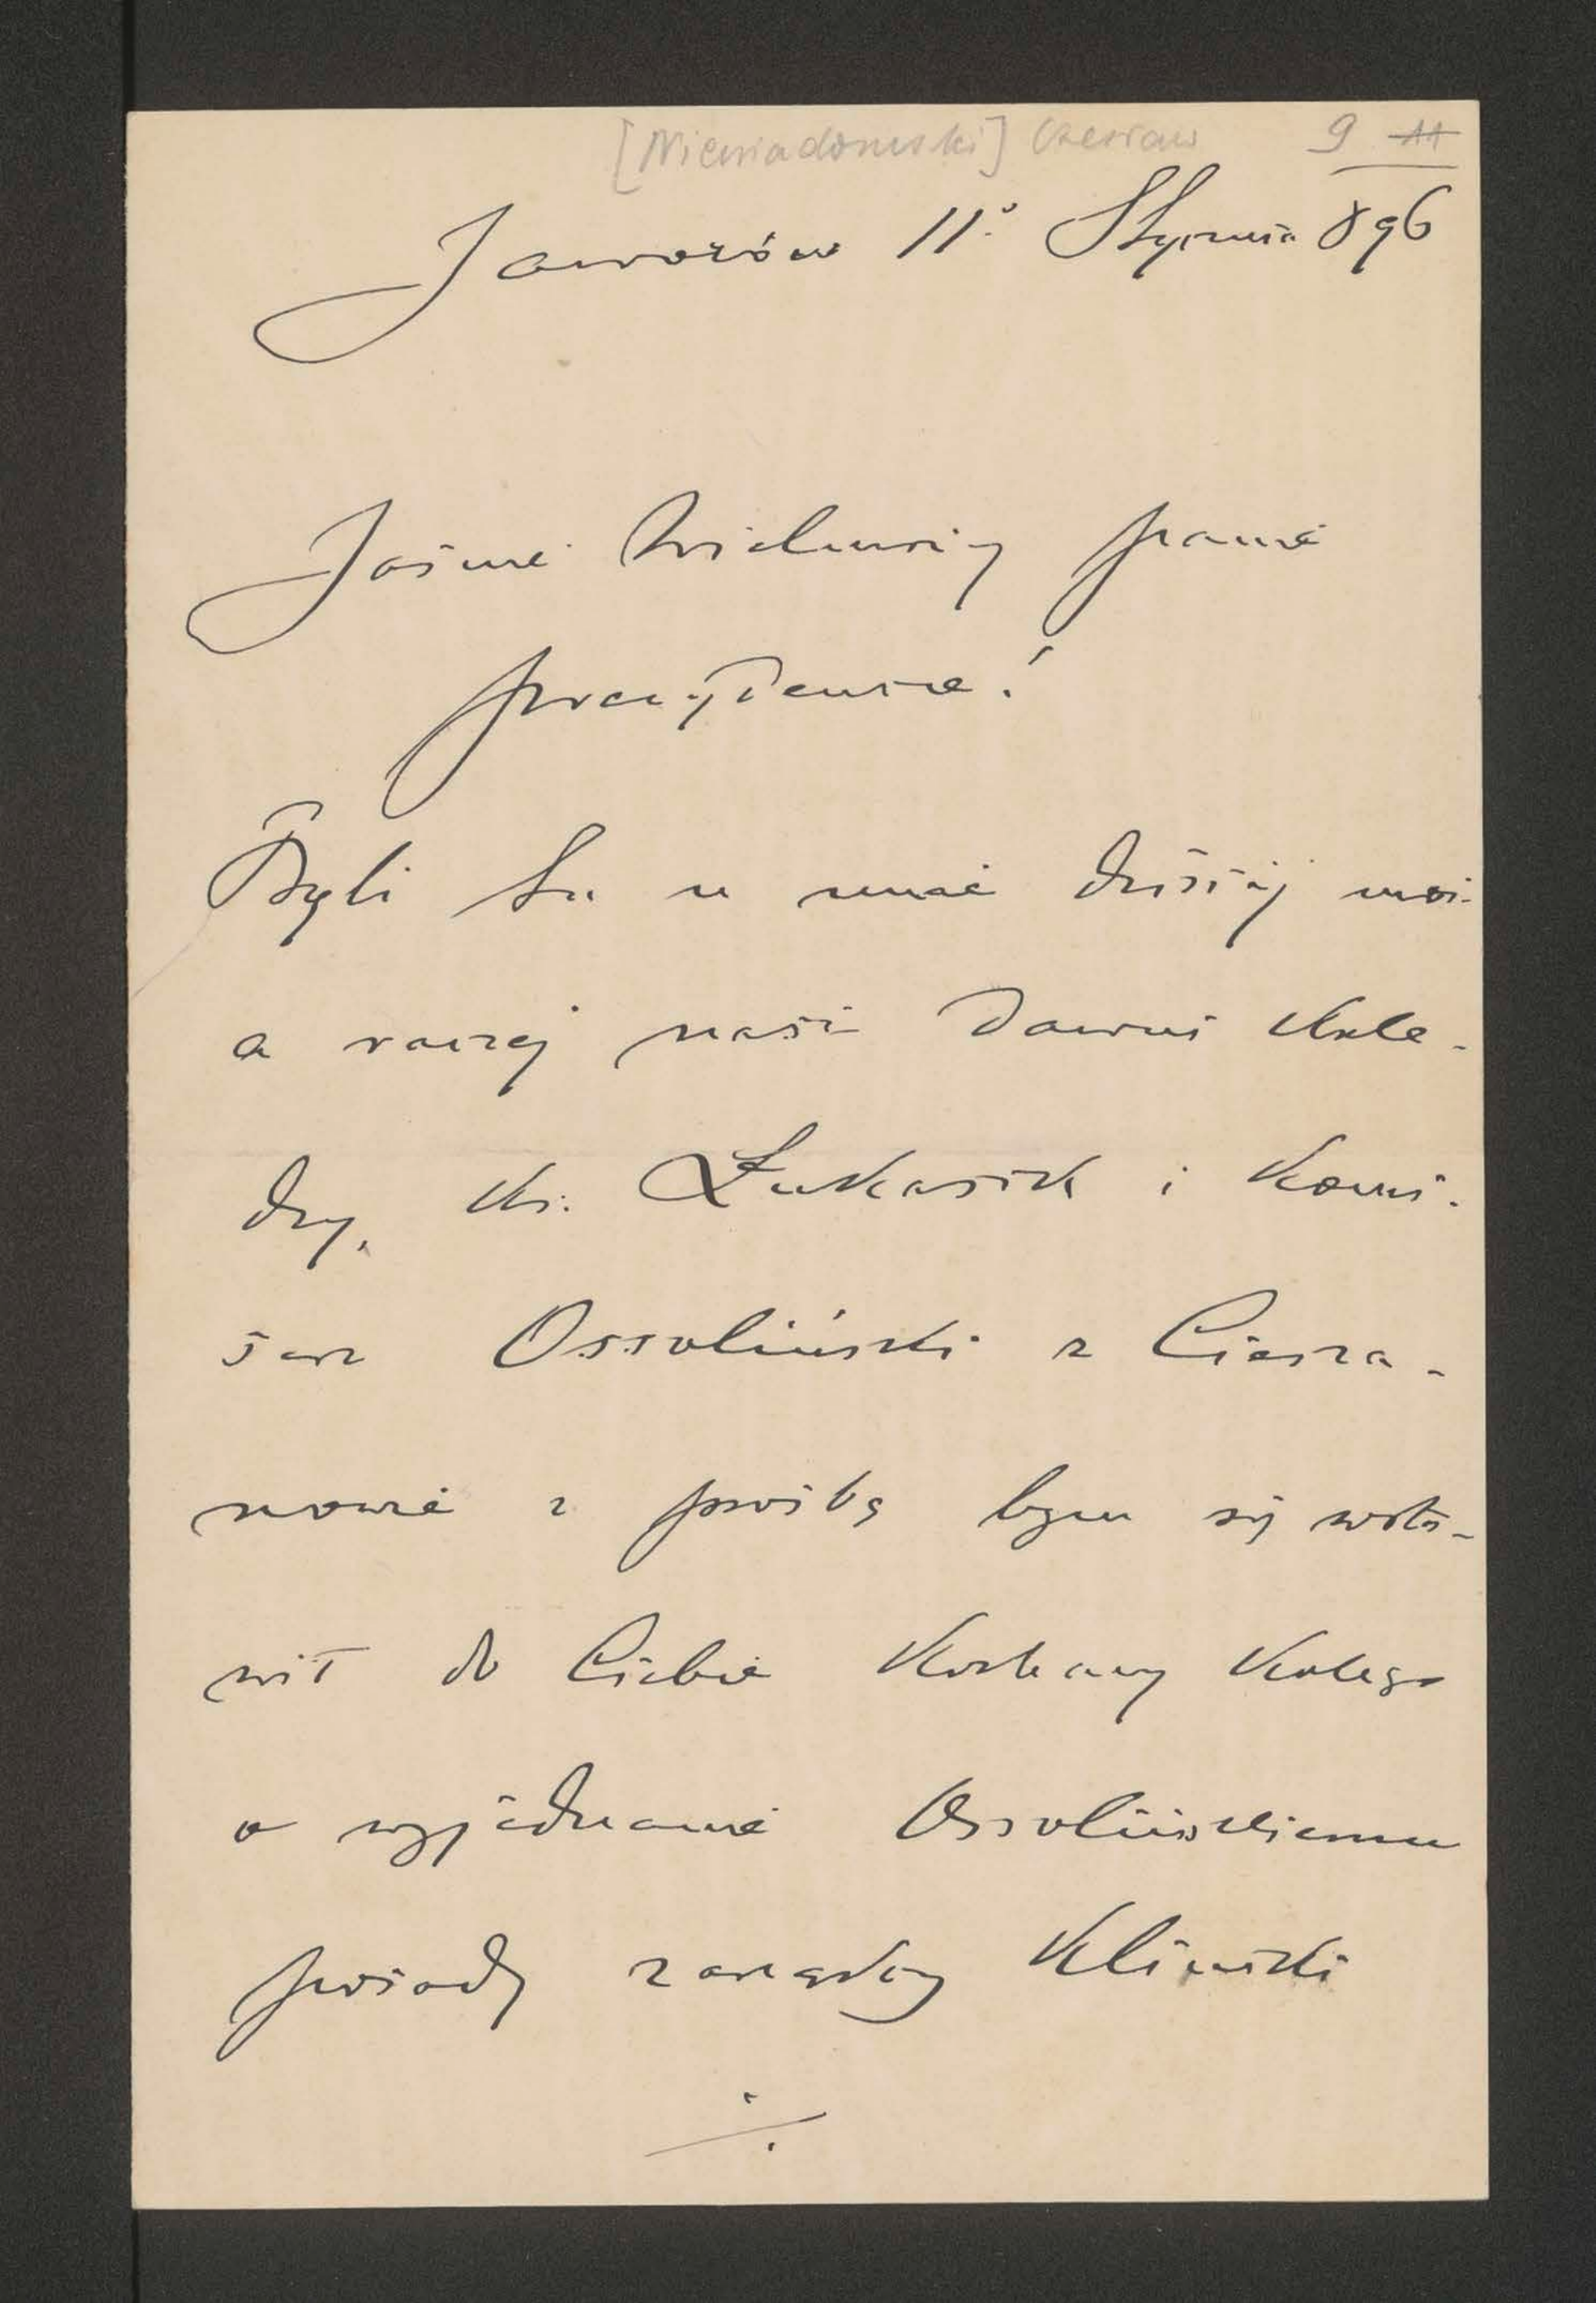 [Niewiadomski] Czesław 9 11
Jaworów 11º Stycznia 896
Jaśnie Wielmożny panie
prezydencie!
Byli tu u mnie dzisiaj moi
a raczej nasi dawni kole-
dzy, ks. Łukasik i komi-
sarz Ossoliński z Ciesza-
nowa z prośbą bym się wsta-
wił do Ciebie Kochany Kolego
o wyjednanie Ossolińskiemu
posady zarządcy kliniki
./.